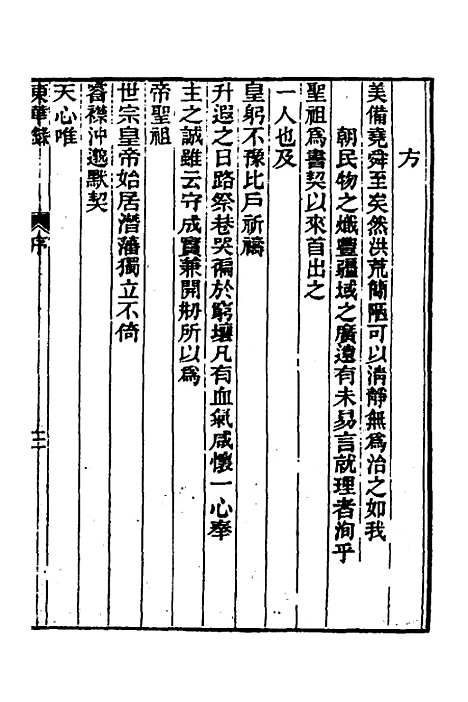 方
美備堯舜至矣然洪荒簡陋可以清靜無爲治之如我
朝民物之熾豐疆域之廣遠有未易言就理者洵乎
聖祖爲書契以來首出之
一人也及
皇躬不豫比戶祈禱
升遐之日路祭巷哭徧於窮壤凡有血氣咸懷一心奉
主之誠雖云守成實兼開刱所以爲
帝聖祖
世宗皇帝始居潛藩獨立不倚
睿襟沖邈默契
天心唯
東華錄
序
二